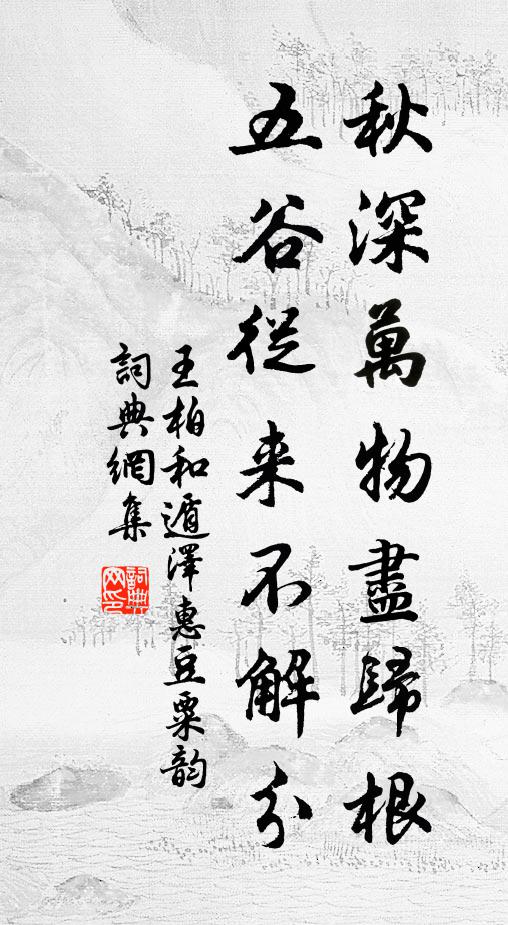 秋深萬物盡歸根
五谷從来不解分
王柏和遁澤惠豆粟韵
詞典網集
詞典網印